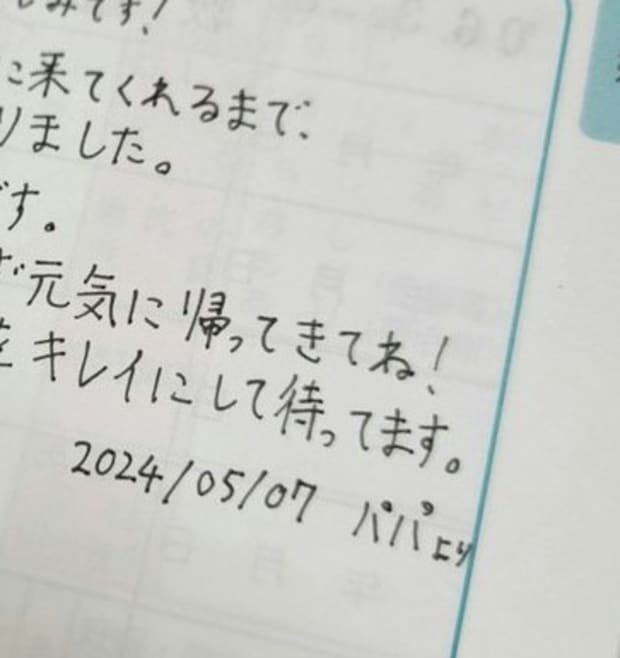 みです!
に来てくれるまで、
りました。
です。
で元気に帰ってきてね!
をキレイにして待ってます。
2024/05/07 パパより